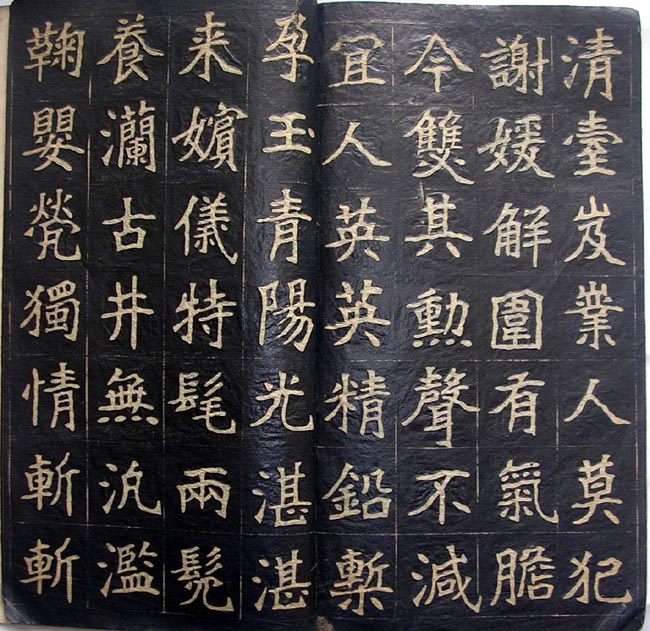 清臺岌業人莫犯
謝媛解圍有氣膽
今雙其勳聲不減
宜人英英精鉛槧
孕玉青陽光湛湛
来嬪儀特髦兩髧
養瀾古井無汎濫
鞠嬰煢獨情斬斬